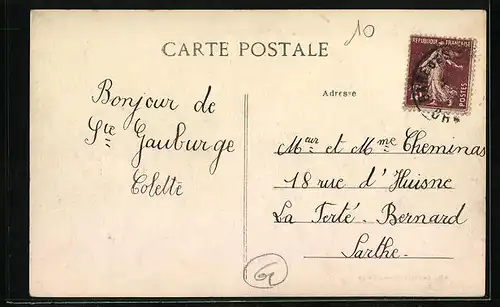 10
CARTE POSTALE
REPUBLIQUE FRANÇAISE
POSTES
Adresse
Bonjour de
Ste Gauburge
Colette
Meur et Mme Cheminas
18 rue d'Huisne
La Ferté-Bernard
Sarthe.